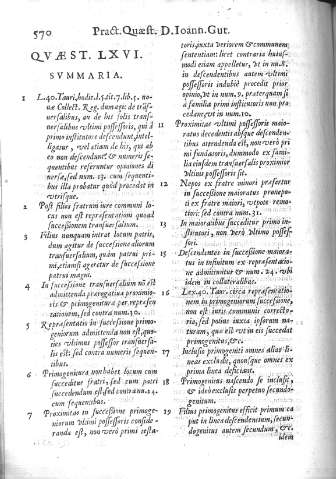 570 Pract. Quæst. D. Ioann. Gut.
QVÆST. LXVI.
SVMMARIA.
1 L. 40. Tauri, hodie l. 5. tit. 7. lib. 5. no-
uæ Collect. Reg. dum agat de trãs-
uersalibus, an de his solis trans-
uersalibus vltimi possessoris, qui à
primo instituente descendunt, intel-
ligatur, vel etiam de his, qui ab
eo non descendunt & numeris se-
quentibus referuntur opiniones di
uersæ, & num. 13. cum sequenti-
bus illa probatur quæ procedat in
vtrisque.
2 Post filios fratrum iure communi lo-
cus non est repræsentationi quoad
successionem transuersalium.
3 Filius nonnunquam intrat locum patris,
dum agitur de successione aliorum
transuersalium, quàm patrui pri-
mi, etiamsi agatur de successione
patrui magni.
4 In successione transuersalium nõ est
admittenda prærogatiua proximita-
tis & primogenitura per repræsen-
rationem, sed contra num. 30.
5 Repræsentatio in successione primo-
geniorum admittenda non est, quan-
do vltimus possessor transuersa-
lis est: sed contra numeris sequen-
tibus.
6 Primogenitura non habet locum cum
succeditur fratri, sed tum patri
succedendum est. sed contra n. 24.
cum sequentibus.
7 Proximitas in successione primoge-
niorum vltimi possessoris conside-
randa est, non verò primi insta-
toris, iuxta veriorem & communem
sententiam: licet contrariũ huius-
modi etiam appelletur, & num. 8.
in descendentibus autem vltimi
possessoris indubiè procedit prior
opinio, & in num. 9. præterquam si
à familia primi instituentis non pro-
cedant, & in num. 10.
11 Proximitas vltimi possessoris maio-
ratus decedentis absque descendenti
bus attendenda est, non verò pri
mi fundatoris, dummodo ex fami-
lia eiusdem transuersalis proximior
vltimi possessoris sit.
12 Nepos ex fratre minori præfertur
in successione maioratus pronepo-
ti ex fratre maiori, vtpote remo-
tiori: sed contra num. 31.
13 In maioratibus succeditur primo in-
stituenti, non verò vltimo posses-
sori.
15 Descendentes in successione maiora-
tus in infinitum ex repræsentatio-
ne admittuntur & num. 24. vbi
idem in collateralibus.
16 Lex 40. Tau. circa repræsentatio-
nem in primogeniorum successione,
non est iuris communis correcto-
ria, sed potius iuxta ipsorum na-
turam, quæ est vt in eis succedat
primogenitus, & c.
17 Inclusio primogeniti omnes alias li-
neas excludit, quousque omnes ex
prima linea deficiant.
18 Primogenius nascendo se inclusit,
& ideò exclusit perpetuò secundo-
genitum.
19 Filius primogenitus efficit primum ca
put in linea descendentium, secun-
dogenitus autem secundum, & c.
idem